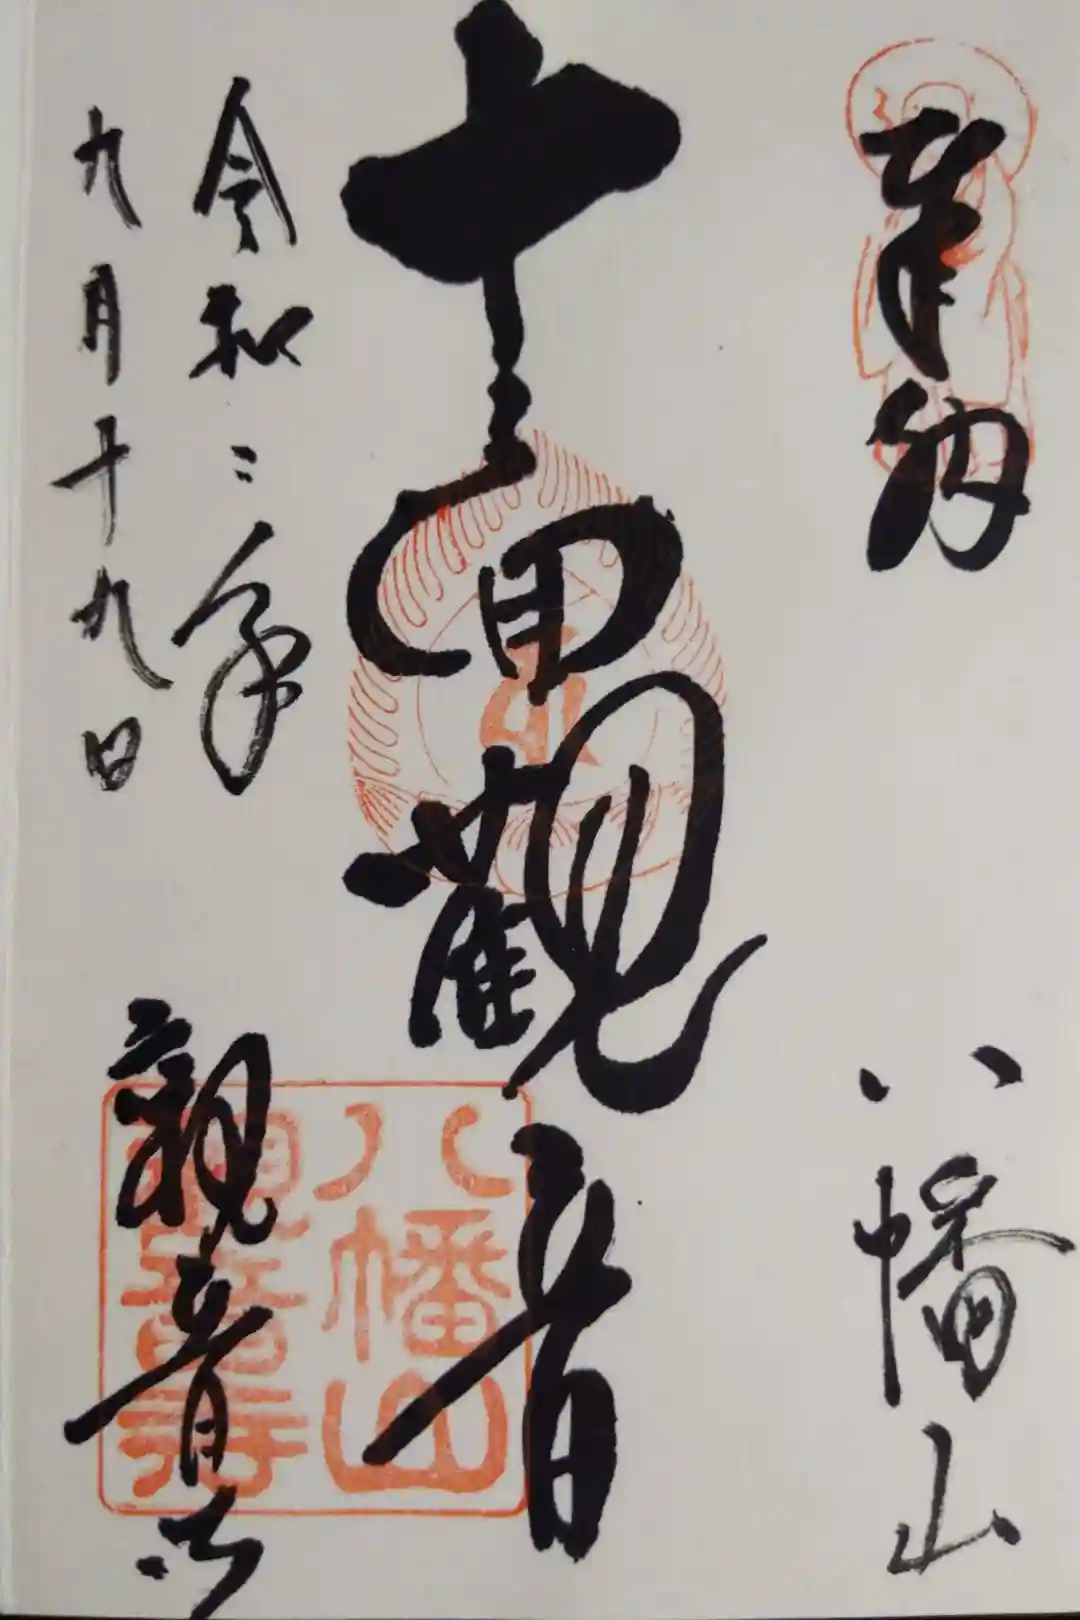 奉納
八幡山
十一面観音
令和二年
九月十九日
観音寺
八幡山
観音寺